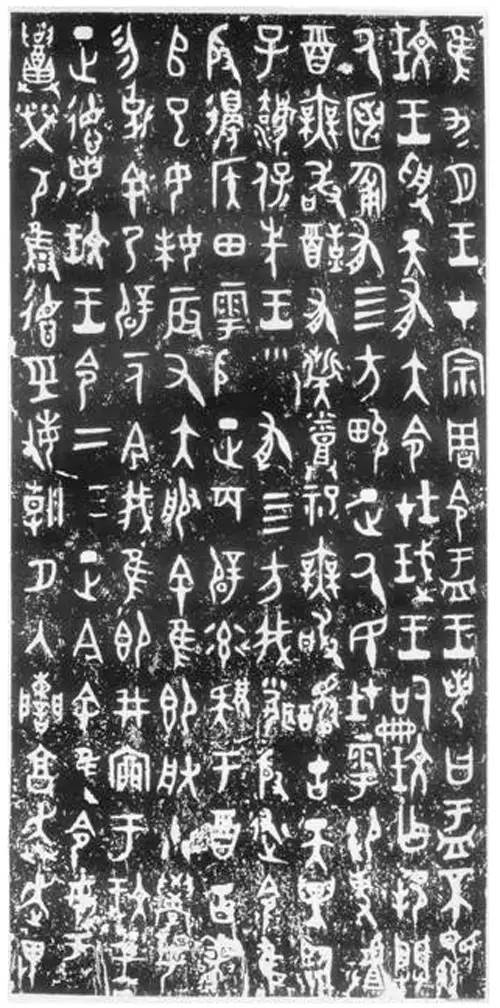 隹九月王才宗周令盂王若曰盂不顯
玟王受天有大令在珷王嗣玟乍邦闢
氒匿匍有四方畯正氒民在雩御事䖒
酉無敢酖有髭烝祀無敢醻古天異臨
子灋保先王有四方我聞殷述令隹
殷邊侯田雩殷正百辟率肄于酉古
𠂤巳女妹辰又大服余隹即朕小學女
勿克余乃辟一人今我隹即井㐭于玟王
正德若玟王令二三正今余隹令女盂
召榮敬雍德巠敏朝夕入讕享奔走畏